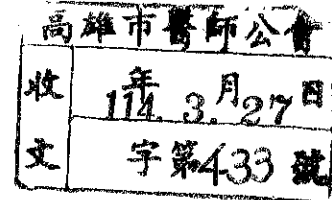 高雄市醫師公會
收文
114年3.月27日
字第433號